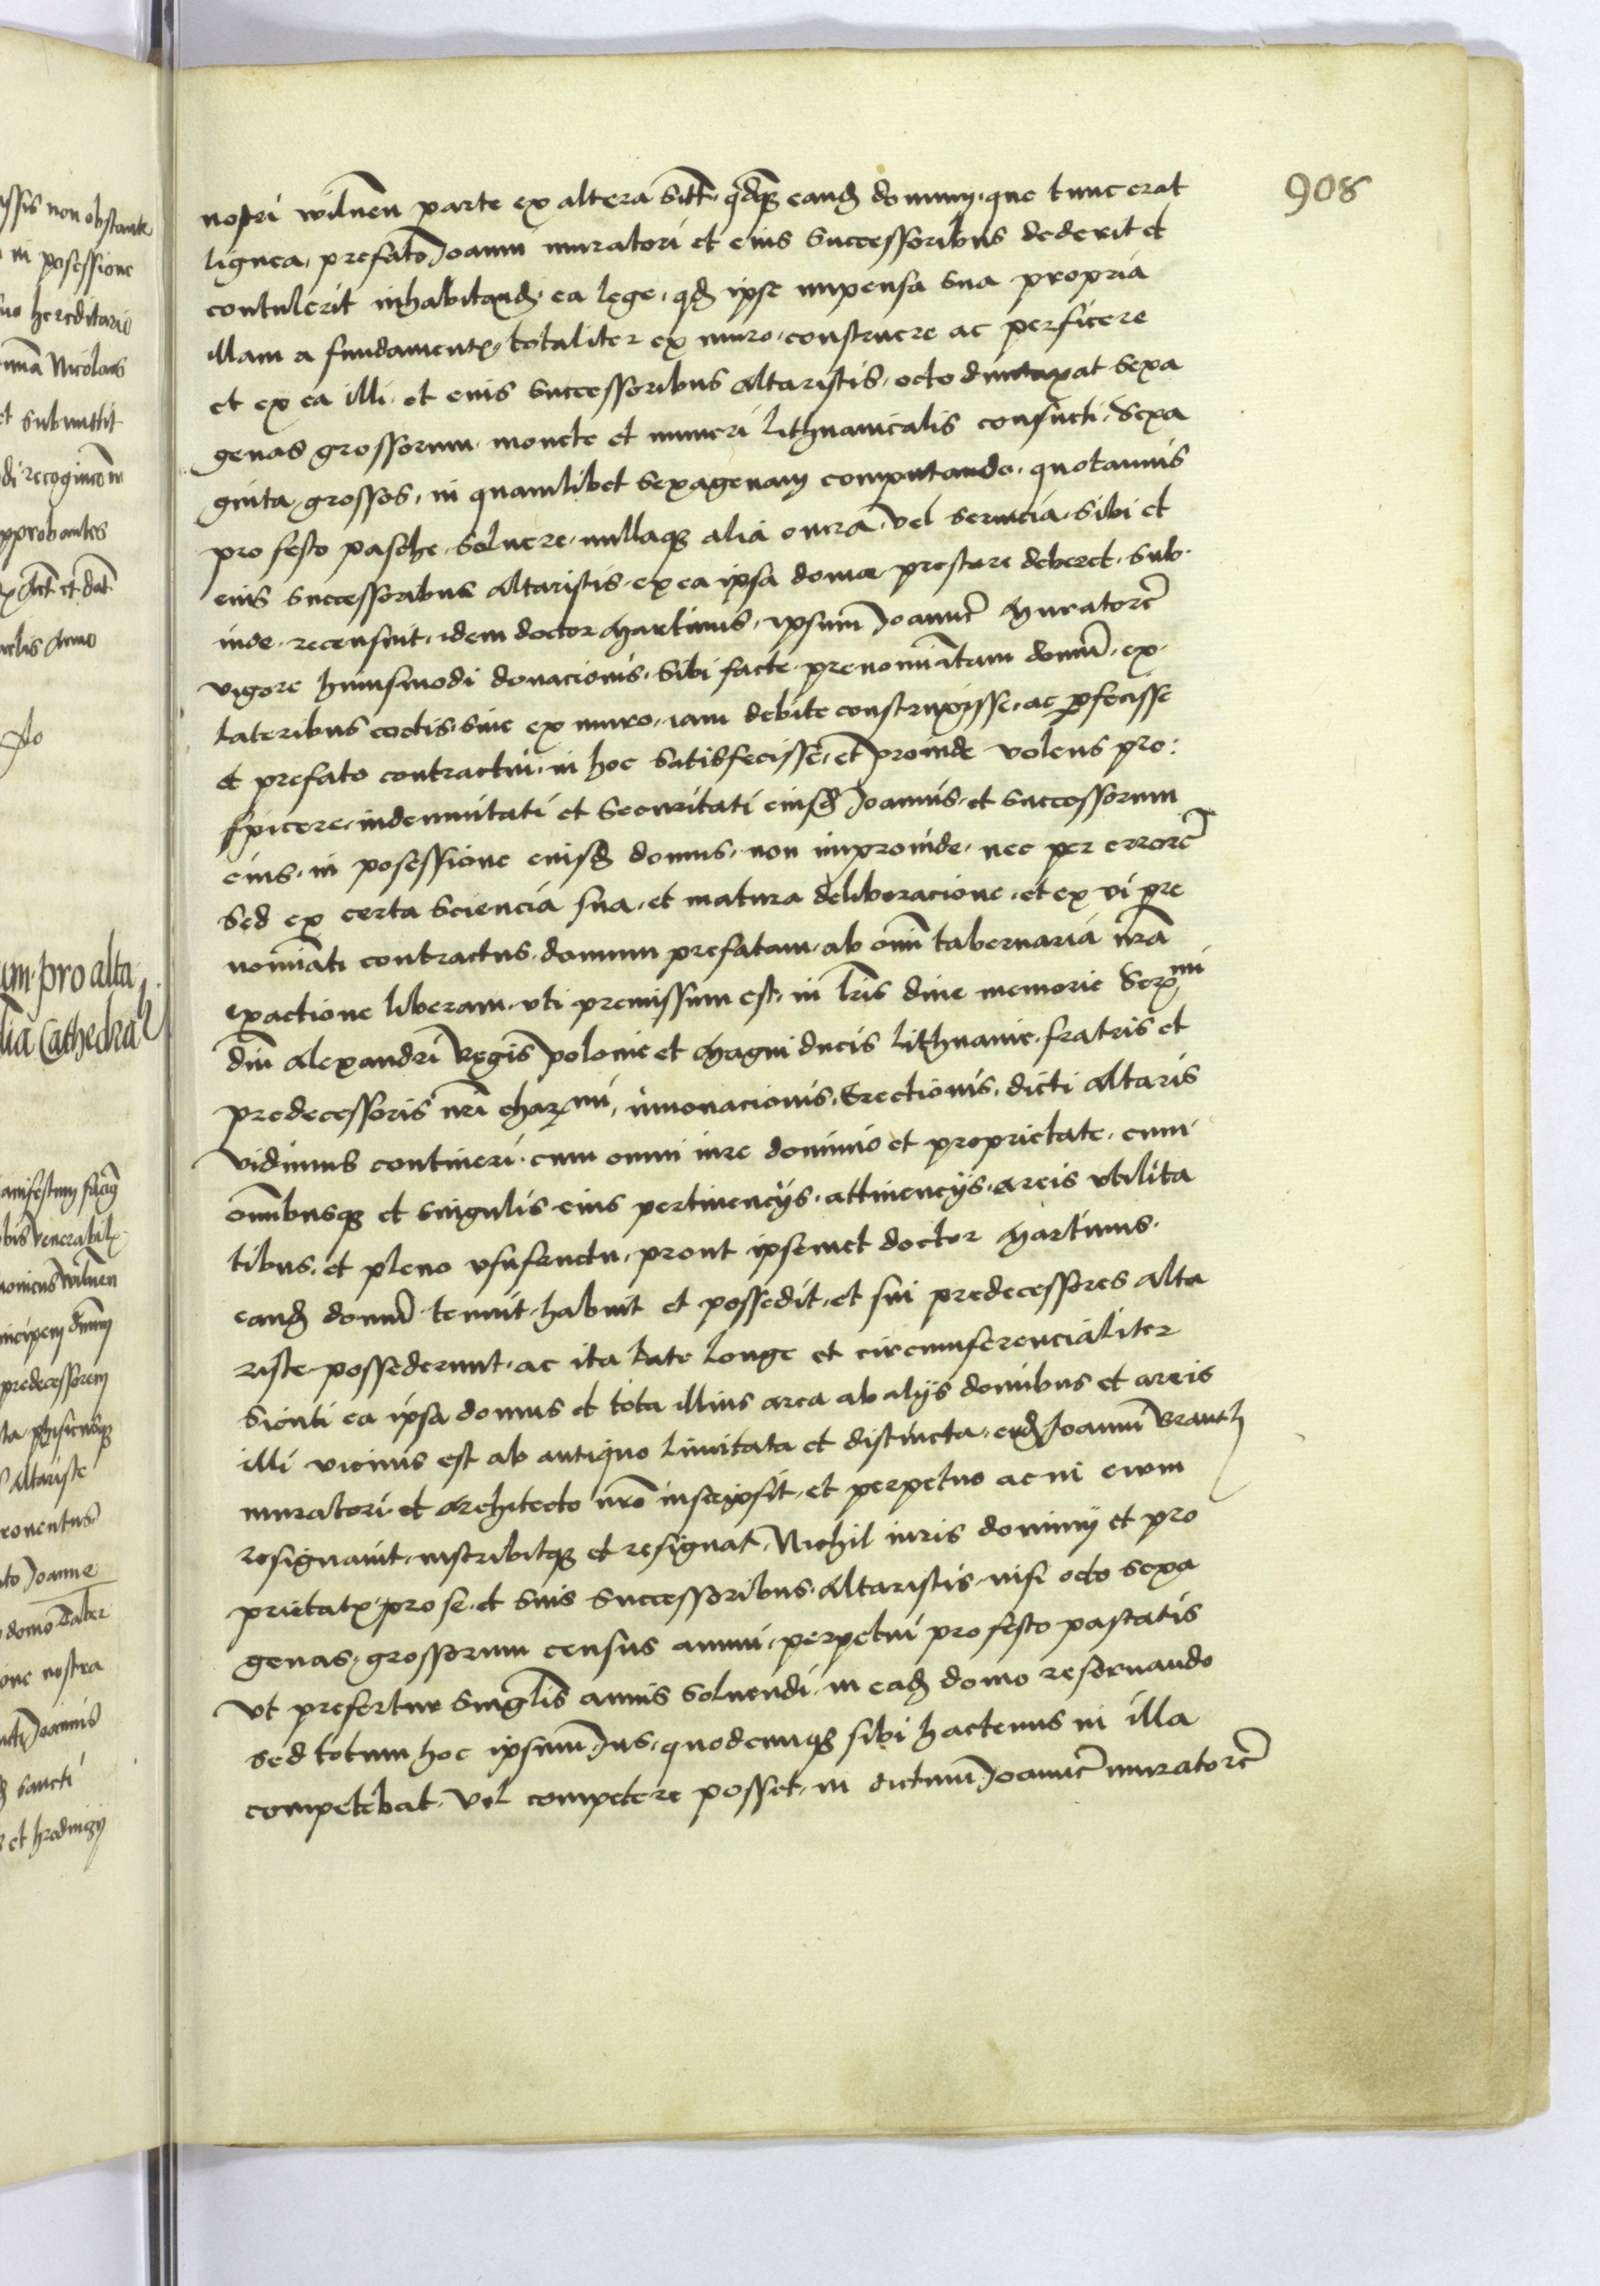 908
nostri wilnen parte ex altera sitt. qdq eand domum, que tunc erat
lignea, prefato Joanni muratori et eius successoribus dederit et
contulerit inhabitand, ea lege, qd ipse impensa sua propria
illam a fundamentis, totaliter ex muro, construere ac perficere
et ex ea illi, et eius successoribus altaristis, octo duntaxat sexa
genas grossorum, monete et numeri Lithuanicalis consueti, Sexa
ginta, grossos, in quamlibet sexagenam computando, quotannis
pro festo pasche, soluere, nullaq alia onera, vel seruicia, sibi et
eius successoribus altaristis, ex ea ipsa domo prestare deberet, sub
inde, recensuit, idem doctor Martinus, ipsum Joanne Muratore
vigore huiusmodi donacionis, sibi facte, prenominatam domu, ex
lateribus coctis, siue ex muro, iam debite construxisse, ac pfecisse
et prefato contractui, in hoc satisfecisse, et proinde volens pro:
spicere, indemnitati et securitati eiusd Joannis, et successorum
eius, in posessione eiusd domus, non improuide, nec per errore
sed ex certa sciencia sua, et matura deliberacione, et ex vi pre
nominati contractus, domum prefatam, ab omni tabernaria nra
exactione liberam, vti premissum est, in lris diue memorie Sermi
dni Alexandri Regis polonie et Magni ducis Lithuanie, fratris et
predecessoris nri charmi, innouacionis, Erectionis, dicti altaris
vidimus contineri, cum omni iure dominio et proprietate, cum
omnibusq et singulis eius pertinencijs, attinencijs, areis vtilita
tibus, et pleno vsufructu, prout ipsemet doctor Martinus
eand domu tenuit, habuit et possedit, et sui predecessores alta
riste possederunt, ac ita late longe et circumferencialiter
sicuti ea ipsa domus et tota illius area ab alijs domibus et areis
illi vicinis est ab antiquo limitata et distincta, eid Joanni Branth
muratori et architecto nro inscripsit, et perpetuo ac in euum
resignauit, inscribitq et resignat, Nichil iuris dominij et pro
prietatis, pro se, et suis successoribus, altaristis, nisi octo sexa
genas, grossorum census annui, perpetui pro festo pascatis
vt prefertur singlis annis soluendi, in ead domo reseruando
sed totum hoc ipsum Jus, quodcunq sibi hactenus in illa
competebat, vel competere posset, in dictum Joanne muratore